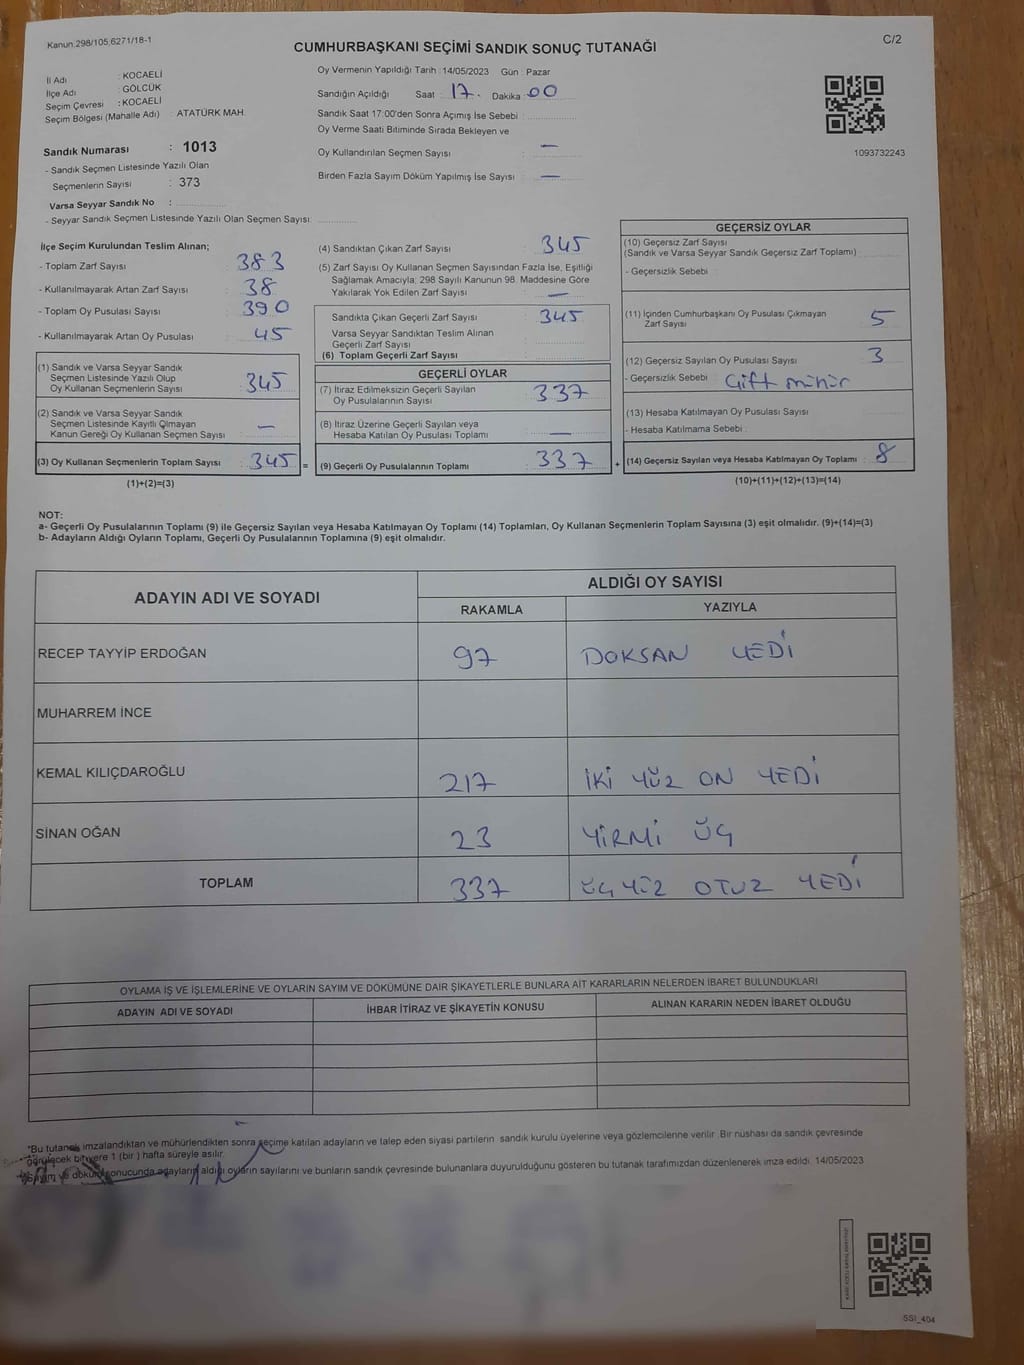 Kanun.298/105;6271/18-1
CUMHURBAŞKANI SEÇİMİ SANDIK SONUÇ TUTANAĞI
C/2
İl Adı : KOCAELİ
İlçe Adı : GÖLCÜK
Seçim Çevresi : KOCAELİ
Seçim Bölgesi (Mahalle Adı) : ATATÜRK MAH.
Sandık Numarası : 1013
- Sandık Seçmen Listesinde Yazılı Olan
Seçmenlerin Sayısı : 373
Varsa Seyyar Sandık No :
- Seyyar Sandık Seçmen Listesinde Yazılı Olan Seçmen Sayısı:
Oy Vermenin Yapıldığı Tarih : 14/05/2023 Gün : Pazar
Sandığın Açıldığı Saat : 17. Dakika : 00
Sandık Saat 17:00'den Sonra Açımış İse Sebebi :
Oy Verme Saati Bitiminde Sırada Bekleyen ve
Oy Kullandırılan Seçmen Sayısı : —
Birden Fazla Sayım Döküm Yapılmış İse Sayısı : —
1093732243
İlçe Seçim Kurulundan Teslim Alınan;
- Toplam Zarf Sayısı : 383
- Kullanılmayarak Artan Zarf Sayısı : 38
- Toplam Oy Pusulası Sayısı : 390
- Kullanılmayarak Artan Oy Pusulası : 45
(1) Sandık ve Varsa Seyyar Sandık
Seçmen Listesinde Yazılı Olup
Oy Kullanan Seçmenlerin Sayısı : 345
(2) Sandık ve Varsa Seyyar Sandık
Seçmen Listesinde Kayıtlı Olmayan
Kanun Gereği Oy Kullanan Seçmen Sayısı : —
(3) Oy Kullanan Seçmenlerin Toplam Sayısı : 345 =
(1)+(2)=(3)
(4) Sandıktan Çıkan Zarf Sayısı : 345
(5) Zarf Sayısı Oy Kullanan Seçmen Sayısından Fazla İse, Eşitliği
Sağlamak Amacıyla; 298 Sayılı Kanunun 98. Maddesine Göre
Yakılarak Yok Edilen Zarf Sayısı : —
Sandıkta Çıkan Geçerli Zarf Sayısı : 345
Varsa Seyyar Sandıktan Teslim Alınan
Geçerli Zarf Sayısı :
(6) Toplam Geçerli Zarf Sayısı
GEÇERLİ OYLAR
(7) İtiraz Edilmeksizin Geçerli Sayılan
Oy Pusulalarının Sayısı : 337
(8) İtiraz Üzerine Geçerli Sayılan veya
Hesaba Katılan Oy Pusulası Toplamı : —
(9) Geçerli Oy Pusulalarının Toplamı : 337 +
GEÇERSİZ OYLAR
(10) Geçersiz Zarf Sayısı
(Sandık ve Varsa Seyyar Sandık Geçersiz Zarf Toplamı) :
- Geçersizlik Sebebi :
(11) İçinden Cumhurbaşkanı Oy Pusulası Çıkmayan
Zarf Sayısı : 5
(12) Geçersiz Sayılan Oy Pusulası Sayısı : 3
- Geçersizlik Sebebi : Çift mühür
(13) Hesaba Katılmayan Oy Pusulası Sayısı :
- Hesaba Katılmama Sebebi :
(14) Geçersiz Sayılan veya Hesaba Katılmayan Oy Toplamı : 8
(10)+(11)+(12)+(13)=(14)
NOT:
a- Geçerli Oy Pusulalarının Toplamı (9) ile Geçersiz Sayılan veya Hesaba Katılmayan Oy Toplamı (14) Toplamları, Oy Kullanan Seçmenlerin Toplam Sayısına (3) eşit olmalıdır. (9)+(14)=(3)
b- Adayların Aldığı Oyların Toplamı, Geçerli Oy Pusulalarının Toplamına (9) eşit olmalıdır.
ADAYIN ADI VE SOYADI
ALDIĞI OY SAYISI
RAKAMLA YAZIYLA
RECEP TAYYİP ERDOĞAN 97 DOKSAN YEDİ
MUHARREM İNCE
KEMAL KILIÇDAROĞLU 217 İKİ YÜZ ON YEDİ
SİNAN OĞAN 23 YİRMİ ÜÇ
TOPLAM 337 ÜÇ YÜZ OTUZ YEDİ
OYLAMA İŞ VE İŞLEMLERİNE VE OYLARIN SAYIM VE DÖKÜMÜNE DAİR ŞİKAYETLERLE BUNLARA AİT KARARLARIN NELERDEN İBARET BULUNDUKLARI
ADAYIN ADI VE SOYADI İHBAR İTİRAZ VE ŞİKAYETİN KONUSU ALINAN KARARIN NEDEN İBARET OLDUĞU
*Bu tutanak imzalandıktan ve mühürlendikten sonra seçime katılan adayların ve talep eden siyasi partilerin sandık kurulu üyelerine veya gözlemcilerine verilir. Bir nüshası da sandık çevresinde
görülecek bir yere 1 (bir) hafta süreyle asılır.
*Sayım ve döküm sonucunda adayların aldığı oyların sayılarını ve bunların sandık çevresinde bulunanlara duyurulduğunu gösteren bu tutanak tarafımızdan düzenlenerek imza edildi. 14/05/2023
SSİ_404